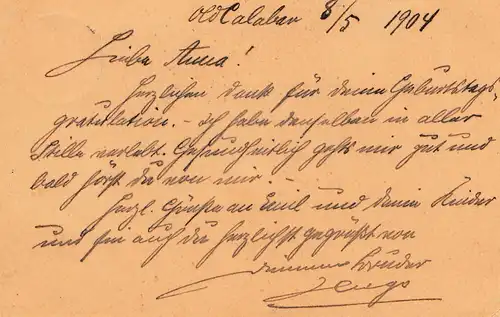 Old Calabar 8/5 1904
Liebe Anna!
Herzlichen Dank für deine Geburtstags-
gratulation. – Ich habe denselben in aller
Stille verlebt. Gesundheitlich gehts mir gut und
bald hörst du von mir –
Herzl. Grüsse an Emil und deine Kinder
und sei auch du herzlichst gegrüßt von
deinem Bruder
Hugo